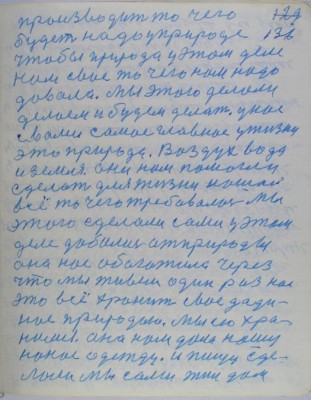 производит то чего 129
будет надо у природе 126
чтобы природа у этом деле
нам свое то чего нам надо
довала. мы этого делали
делаем и будем делат. у нас
с вами самое главное у жизни
это природа. Воздух вода
и земля. они нам помогли
сделат для жизни нашей
всё то чего требавалос мы
этого сделали сами у этом
деле добалис атприроды
она нас обагатила через
что мы живем один раз нас
это всё хранит свое дади-
ное природаю. мы ею хра-
ним. ана нам дала нашу
одежду. и пищу сде-
лали мы сами жил дом